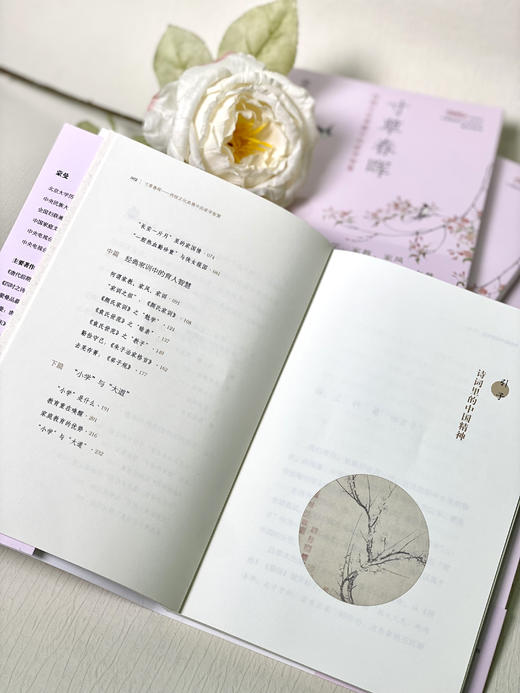 寸草春晖
蒙曼
北京大学历
中央民族大
全国妇联兼
中国家庭文
中央电视台
中央电视台
主要著作
寸草春晖——传统文化典籍中的家学智慧
“长安一片月”里的家国情·074
“一腔热血勤珍重”与侠女报国
中篇 经典家训中的育人智慧
何谓家教、家风、家训·091
“家训之祖”，《颜氏家训》·108
《颜氏家训》之“勉学”·121
《袁氏世范》之“睦亲”·137
《袁氏世范》之“教子”·149
勤俭守己，《朱子治家格言》·162
去芜存菁，《弟子规》·177
下篇 “小学”与“大道”
“小学”是什么·191
教育重在唤醒·201
家庭教育的优势·216
“小学”与“大道”·232
诗词里的中国精神